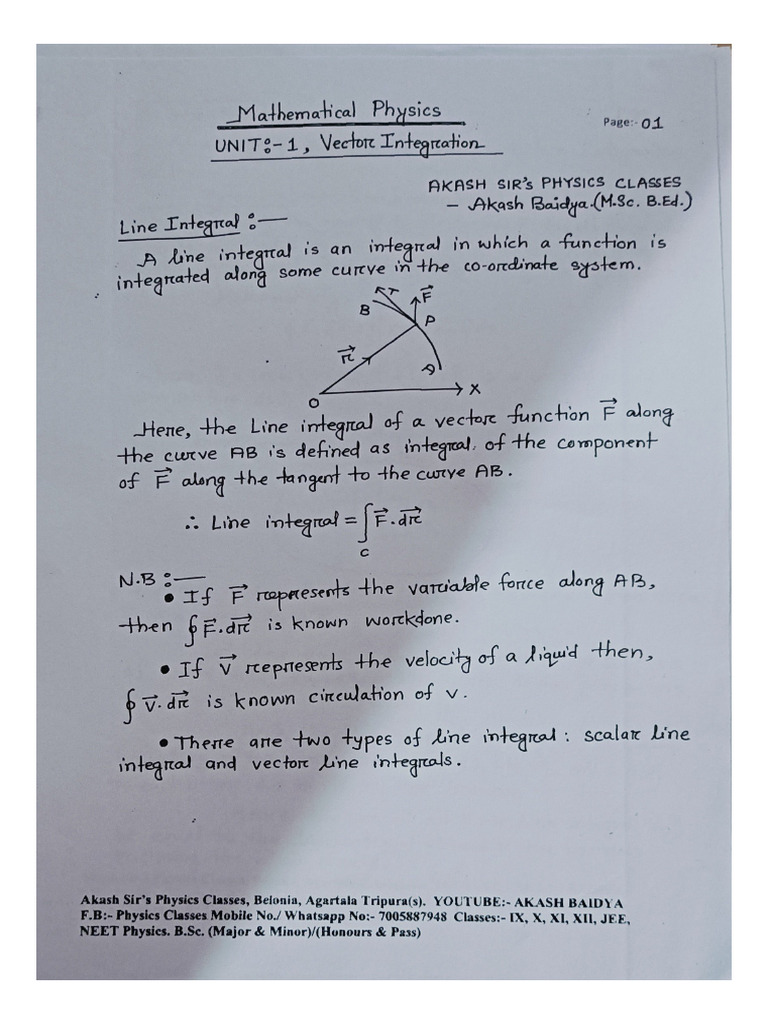 Mathematical Physics
Page:- 01
UNIT:-1, Vector Integration
AKASH SIR's PHYSICS CLASSES
- Akash Baidya.(M.Sc. B.Ed.)
Line Integral :-
A line integral is an integral in which a function is
integrated along some curve in the co-ordinate system.
B T F⃗
P
r⃗
A
O X
Here, the Line integral of a vector function F⃗ along
the curve AB is defined as integral of the component
of F⃗ along the tangent to the curve AB.
∴ Line integral = ∫ F⃗.dr⃗
C
N.B :-
• If F⃗ represents the variable force along AB,
then ∮ F⃗.dr⃗ is known workdone.
• If V⃗ represents the velocity of a liquid then,
∮ V⃗.dr⃗ is known circulation of v.
• There are two types of line integral: scalar line
integral and vector line integrals.
Akash Sir's Physics Classes, Belonia, Agartala Tripura(s). YOUTUBE:- AKASH BAIDYA
F.B:- Physics Classes Mobile No./ Whatsapp No:- 7005887948 Classes:- IX, X, XI, XII, JEE,
NEET Physics. B.Sc. (Major & Minor)/(Honours & Pass)